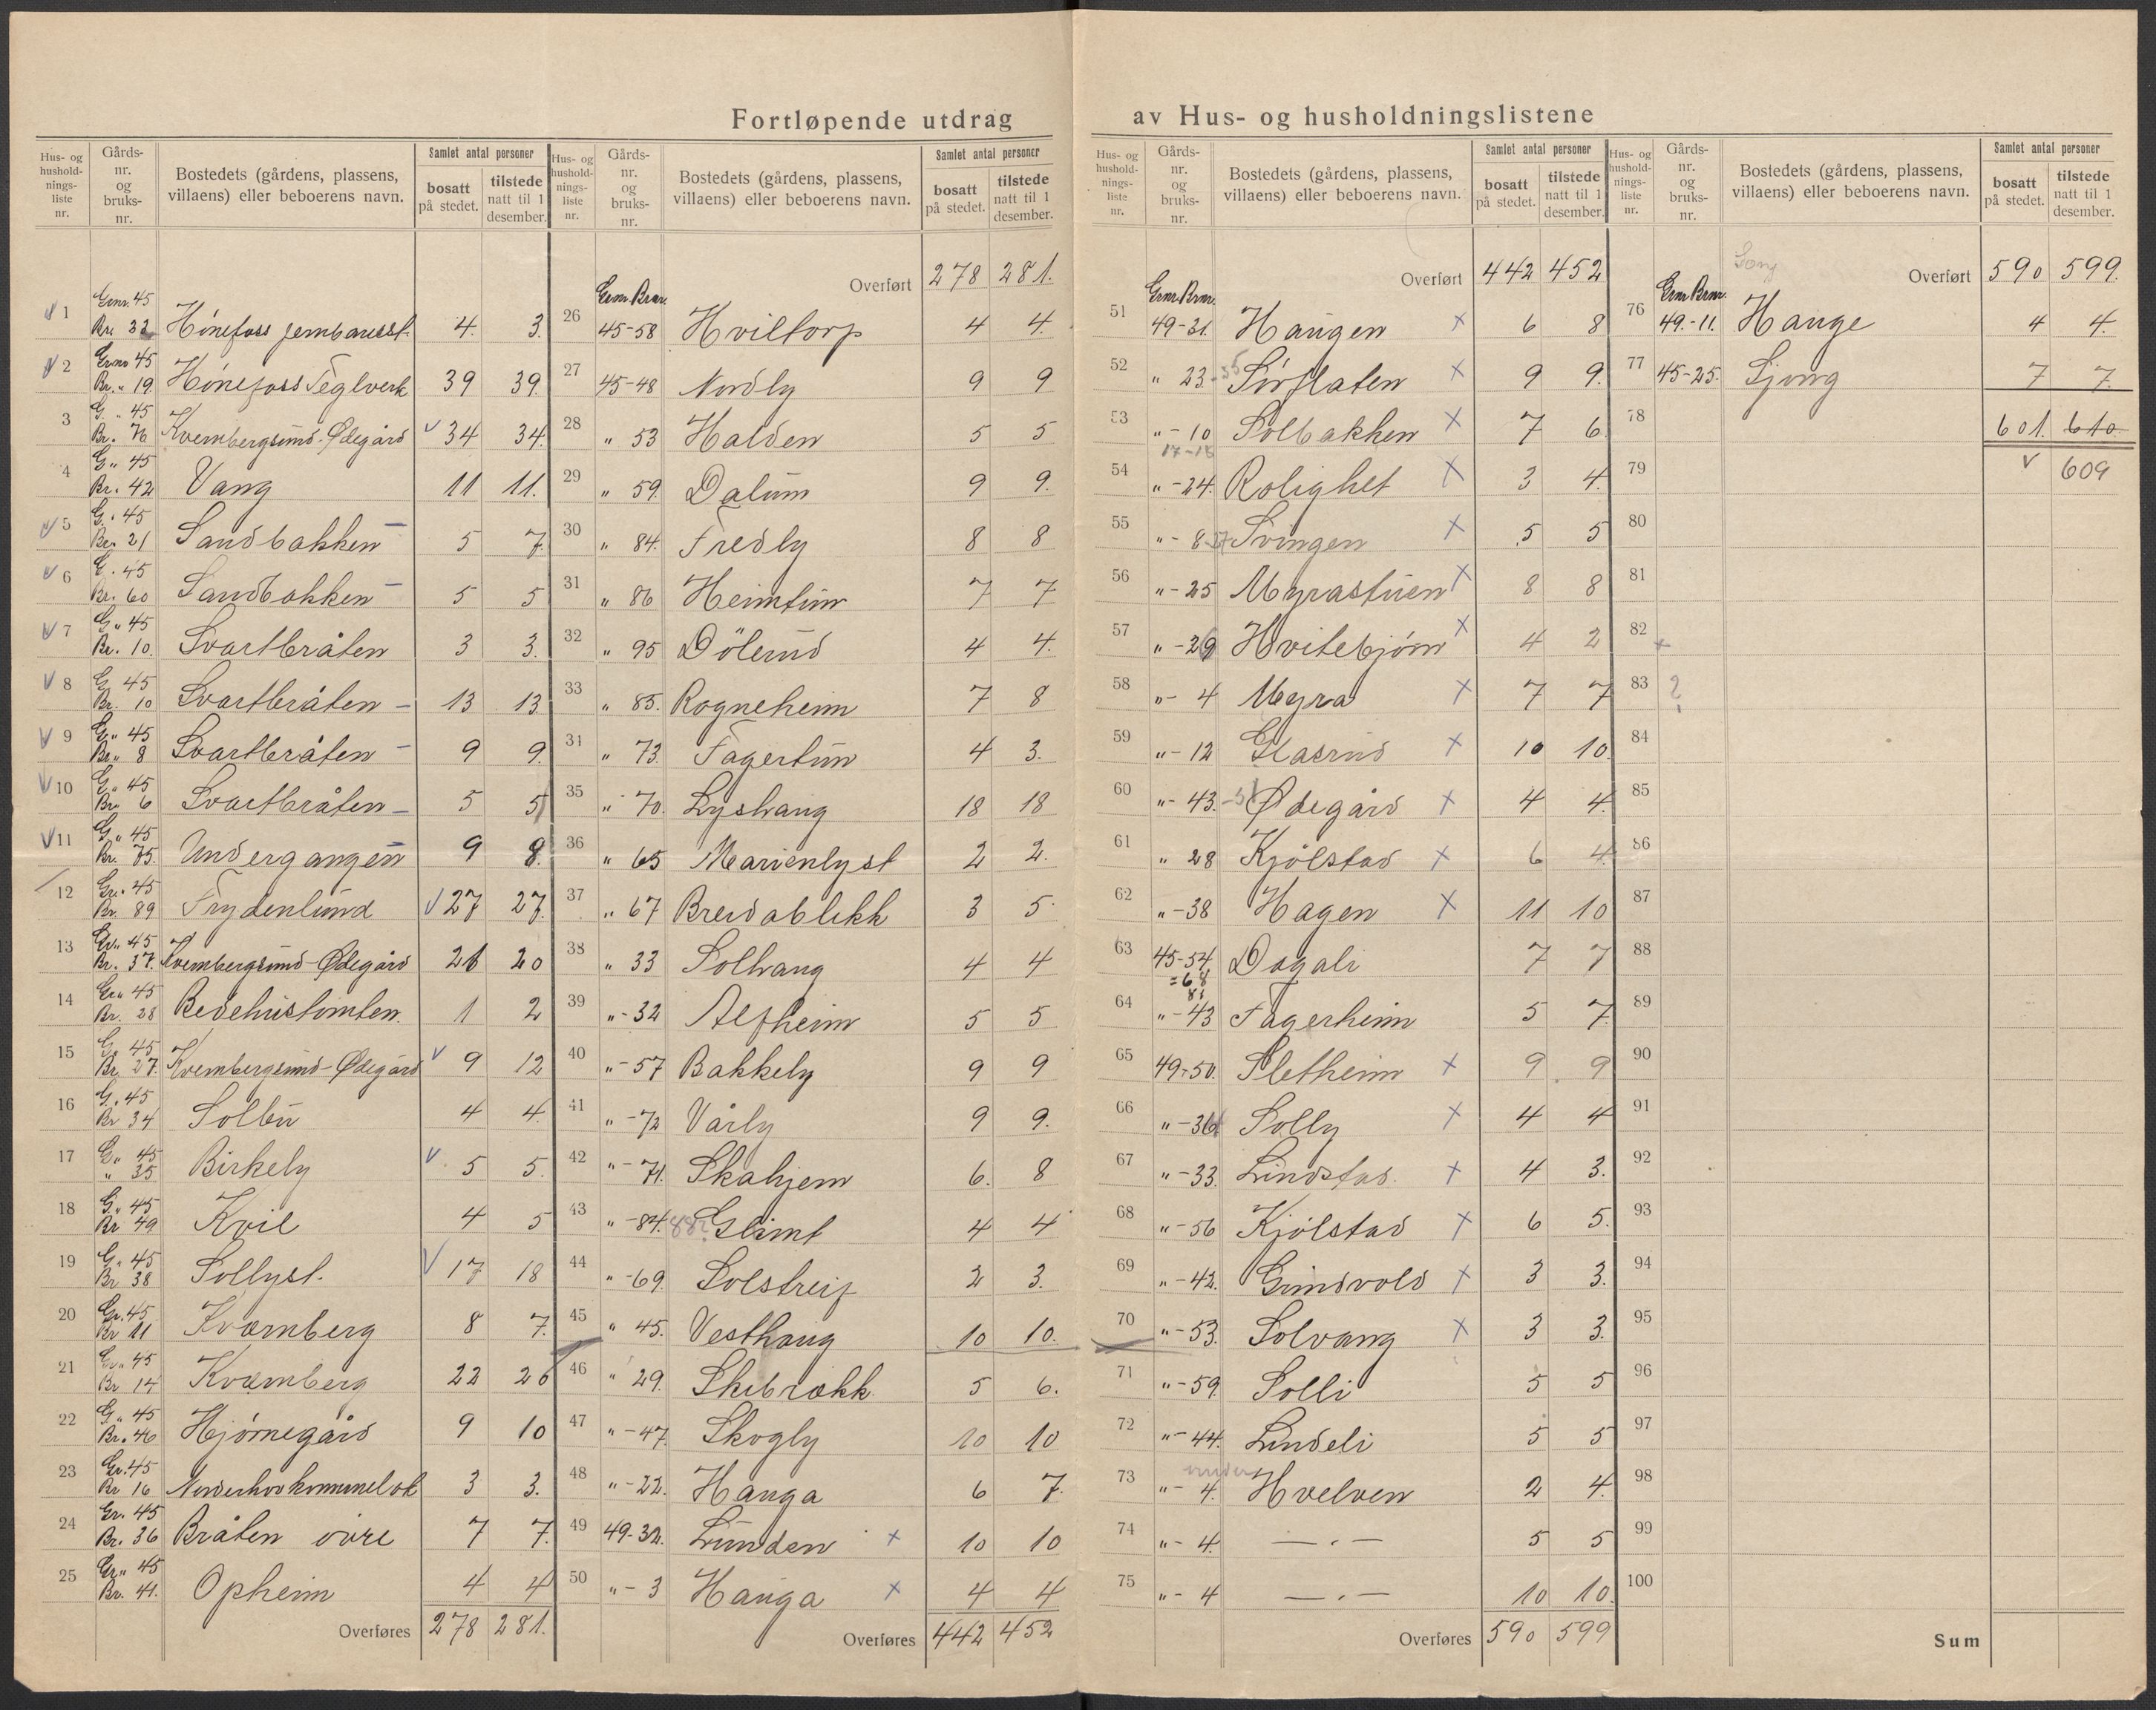 Fortløpende utdrag av Hus- og husholdningslistene
Hus- og husholdningsliste nr. Gårds-nr. og bruks-nr. Bostedets (gårdens, plassens, villaens) eller beboerens navn. Samlet antal personer bosatt på stedet. tilstede natt til 1 desember.
1 Gmr. 45 Br. 32 Hönefoss jernbanest. 4. 3.
2 Gmr 45 Br. " 19. Hönefoss Teglverk 39 39.
3 G. " 45 Br. 76 Kvernbergsund-Ødegård 34 34.
4 G " 45 Br. 42 Vang 11 11.
5 G. 45 Br. 21 Sandbakken 5 7.
6 G. 45 Br. 60 Sandbakken 5 5
7 G " 45 Br. 10. Svartbråten 3 3.
8 G 45 Br. 10 Svartbråten 13 13
9 G " 45 Br. " 8 Svartbråten 9 9.
10 G " 45 Br. 6 Svartbråten 5 5
11 G " 45 Br. 75. Undergangen 9 8.
12 Gr. 45 Br. 89 Frydenlund 27 27.
13 Gr. 45 Br. 37. Kvernbergsund-Ødegård 21 20
14 Gr. 45 Br. 28 Bedehustomten. 1 2
15 G. 45 Br. 27. Kvernbergsund-Ødegård 9 12
16 G. 45 Br 34 Solbu 4 4.
17 G. 45 " 35 Birkely 5 5.
18 G. 45 Br 49 Kvil 4 5
19 G. 45 Br 38 Sollyst. 17 18
20 Gr. 45 Br 11 Kvernberg 8 7.
21 Gr. 45 Br 14 Kvernberg 22 26
22 G. 45 Br. 46 Hjörnegård 9 10
23 Gr. 45 Br 16 Norderhov kommunelok 3 3.
24 Gr. 45 Br. 36 Bråten övre 7 7.
25 Gr. " 45 Br. 41. Opheim 4 4
Overføres 278 281.
Hus- og husholdningsliste nr. Gårds-nr. og bruks-nr. Bostedets (gårdens, plassens, villaens) eller beboerens navn. Samlet antal personer bosatt på stedet. tilstede natt til 1 desember.
Gmr. Brnr. Overført 278 281.
26 45-58 Hviltorp 4 4.
27 45-48 Nordly 9 9
28 " 53 Halden 5 5
29 " 59. Dalum 9 9.
30 " 84. Fredly 8 8
31 " 86 Heimtun 7 7
32 " 95 Dölerud 4 4.
33 " 85. Rogneheim 7 8
34 " 73. Fagertun 4 3.
35 " 70. Lyshaug 18 18
36 " 65 Marienlyst 2 2.
37 " 67 Breidablikk 3 5
38 " 33 Solhaug 4 4
39 " - 32 Alfheim 5 5
40 " - 57 Bakkely 9 9
41 " - 72 Vårly 9 9.
42 " - 71. Skahjem 6. 8
43 " - 84. 88? Glimt 4 4
44 " - 69. Solstreif 2 3.
45 " 45. Vesthaug 10 10.
46 " 29. Skibrokk. 5 6.
47 " - 47. Skogly 10 10
48 " - 22. Hauga 6 7.
49 49-32. Lunden × 10 10
50 " - 3 Hauga × 4 4
Overføres 442 452
Hus- og husholdningsliste nr. Gårds-nr. og bruks-nr. Bostedets (gårdens, plassens, villaens) eller beboerens navn. Samlet antal personer bosatt på stedet. tilstede natt til 1 desember.
Gmr. Brnr. Overført 442 452
51 49-31. Haugen × 6 8
52 " 23-35 Sörflaten × 9 9.
53 " - 10 Solbakken × 7 6
17-18
54 " - 24. Rolighet × 3 4.
55 " - 8-27 Svingen × 5 5
56 " - 25 Myrastuen × 8 8
57 " - 29 Hvitebjörn × 4 2
58 " - 4 Myra × 7 7
59 " - 12 Glaserud × 10 10.
60 " - 43. -51 Ødegård × 4 4.
61 " 28 Kjölstad × 6 4.
62 " - 38 Hagen × 11 10
63 45-54 Dagali 7 7
= 68
81
64 " - 43 Fagerheim 5 7
65 49-50. Sletheim × 9 9
66 " - 36 Solly × 4 4
67 " - 33. Lindstad. × 4 3.
68 " - 56 Kjölstad × 6 5.
69 " - 42. Grindvold × 3 3.
70 " - 53. Solvang × 3 3.
71 " - 59. Solli 5 5
72 " - 44. Lindeli 5 5
73 under " - 4. Hvelven 2 4.
74 " - 4. — " — 5 5
75 " - 4 — " — 10 10.
Overføres 590 599
Hus- og husholdningsliste nr. Gårds-nr. og bruks-nr. Bostedets (gårdens, plassens, villaens) eller beboerens navn. Samlet antal personer bosatt på stedet. tilstede natt til 1 desember.
Gmr. Brnr. Overført 590 599.
76 49.-11. Hauge 4 4.
77 45-25. Ljong 7 7.
78 601. 610.
79 v 609
80
81
82 ×
83 ?
84
85
86
87
88
89
90
91
92
93
94
95
96
97
98
99
100
Sum